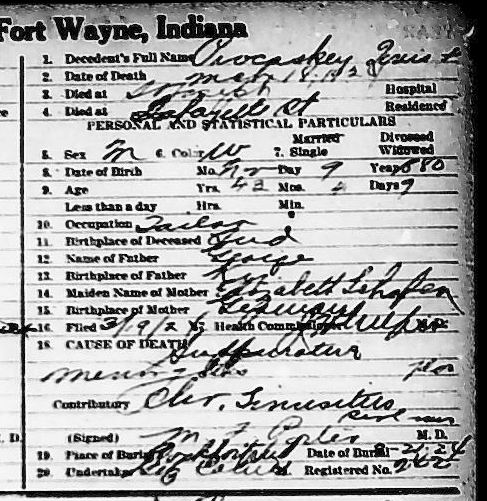 Fort Wayne, Indiana
1. Decedent's Full Name
2. Date of Death Mar 18
3. Died at St Joseph Hospital
4. Died at Lafayette St Residence
PERSONAL AND STATISTICAL PARTICULARS
Married Divorced
5. Sex M 6. Color W 7. Single Widowed
8. Date of Birth Mo. Nov Day 9 Year 880
9. Age Yrs. 43 Mos. 4 Days 9
Less than a day Hrs. Min.
10. Occupation Tailor
11. Birthplace of Deceased Ind
12. Name of Father George
13. Birthplace of Father
14. Maiden Name of Mother Elizabeth
15. Birthplace of Mother Germany
16. Filed 3/19/2 17. Health Commissioner
18. CAUSE OF DEATH Suppurative
meningitis
Contributory Chr. Sinusitis
M. D.
(Signed) M. F. Porter M. D.
19. Place of Burial Date of Burial 3-21-24
20. Undertaker 21. Registered No. 262